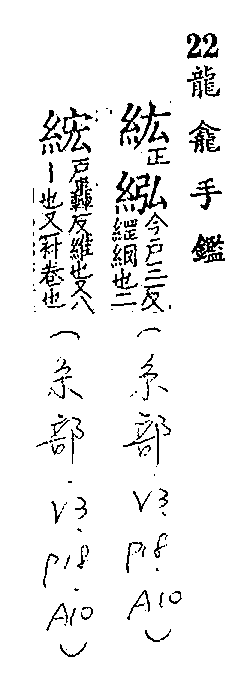 22龍龕手鑑
紘正紭今戶三反
繩網也二
(糸部.V3.P18.A10)
綋戶萌反維也又八
丨也又卦卷也
(糸部.V3.P18.A10)